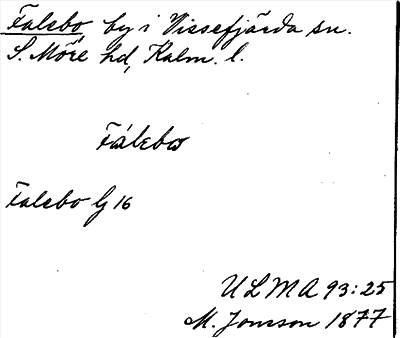 Falebo by i Vissefjärda sn.
S. Möre hd, Kalm. l.
Fálebω
Falebo G 16
ULMA 93:25
M. Jonsson 1877